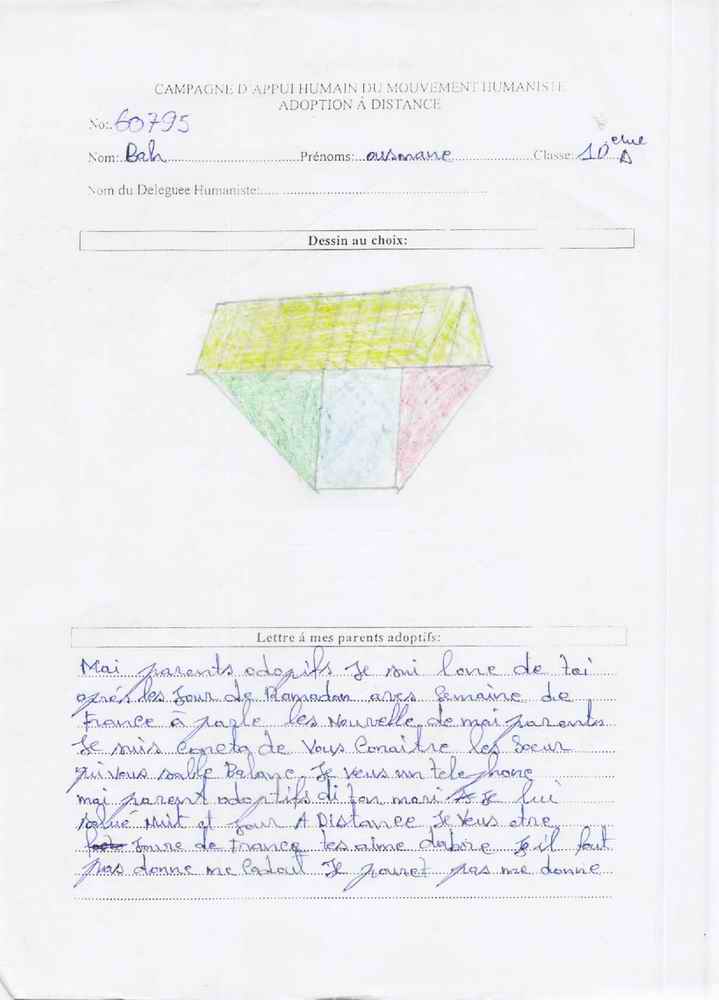 CAMPAGNE D'APPUI HUMAIN DU MOUVEMENT HUMANISTE
ADOPTION Á DISTANCE
No:.60795
Nom: Bah Prénoms: ousmane Classe: 10 eme A
Nom du Deleguee Humaniste:
Dessin au choix:
Lettre á mes parents adoptifs:
Mai parents adopifs Je sui lone de toi
après les Jour de Ramadan aves Semaine de
France à parle les Nouvelle de mai parents
Je suis de Vous Conaitre les Soeur
qui vous Je veus un telephone
mai parent adoptifs di ton mari Je lui
salué Nuit et jour A Distance Je Veus etre
Joure de France tes aime dabore il faut
pas donne me Je pouret pas me donne